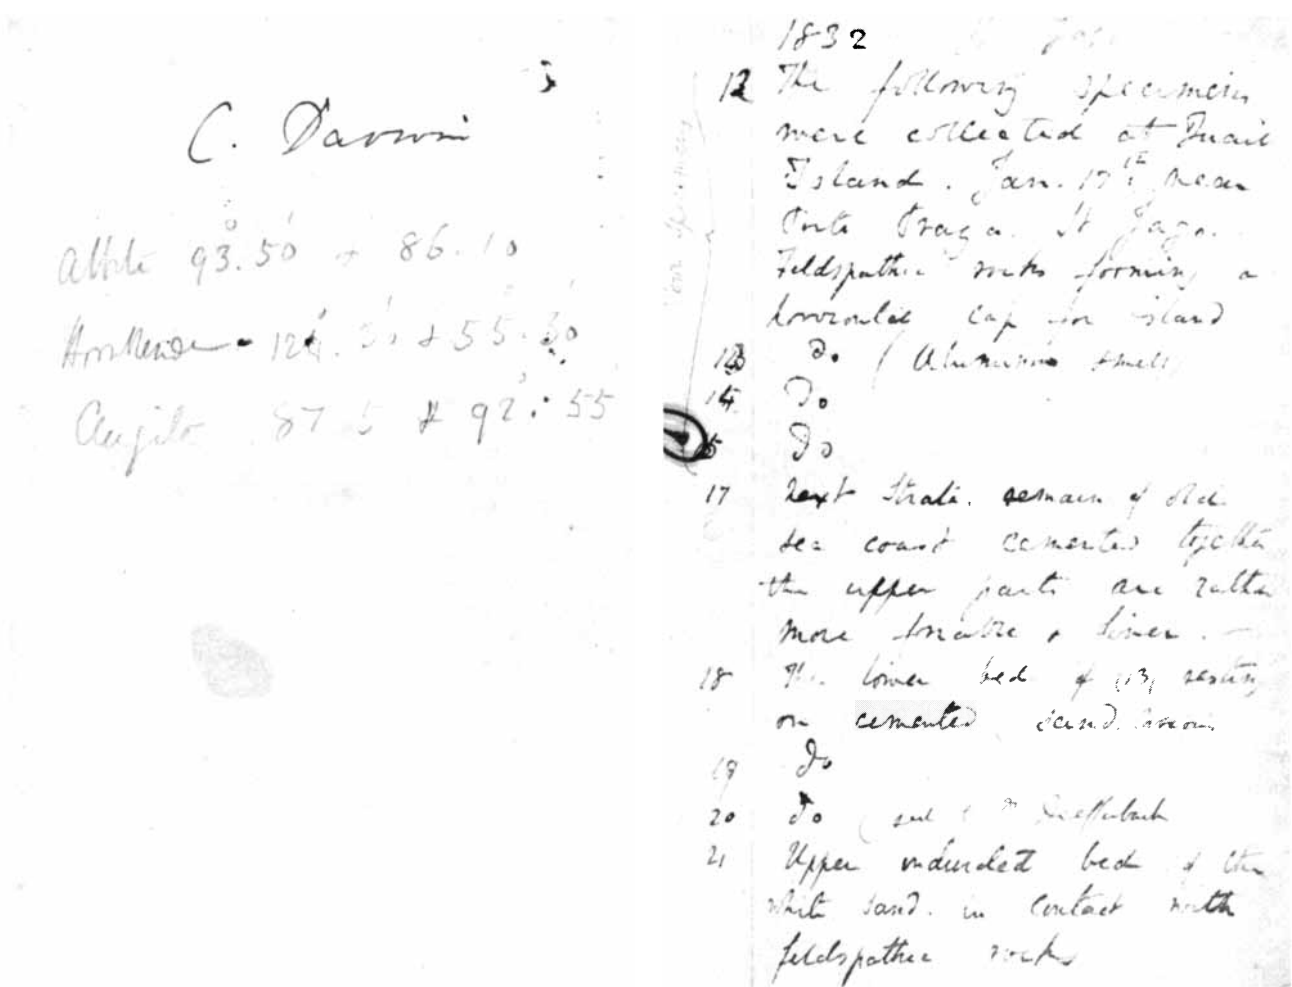 C. Darwin
Albite 93°.50' + 86.10
Hornblende - 124°.30' & 55.30'
Augite 87 5 & 92°.55'
1832
12 The following specimens
were collected at Quail
Island. Jan. 17th. near
Porto Praya. St Jago.
Feldspathic rocks forming a
horizontal cap for island
13 Do (Aluminous smell)
14 Do
15 Do
17 Next Strata. remain of old
sea coast cemented together
the upper parts are rather
more friable & finer. —
18 The lower bed of (13) resting
on cemented sand.
19 Do
20 Do
21 Upper indurated bed of the
white sand. in contact with
feldspathic rocks
four specimens